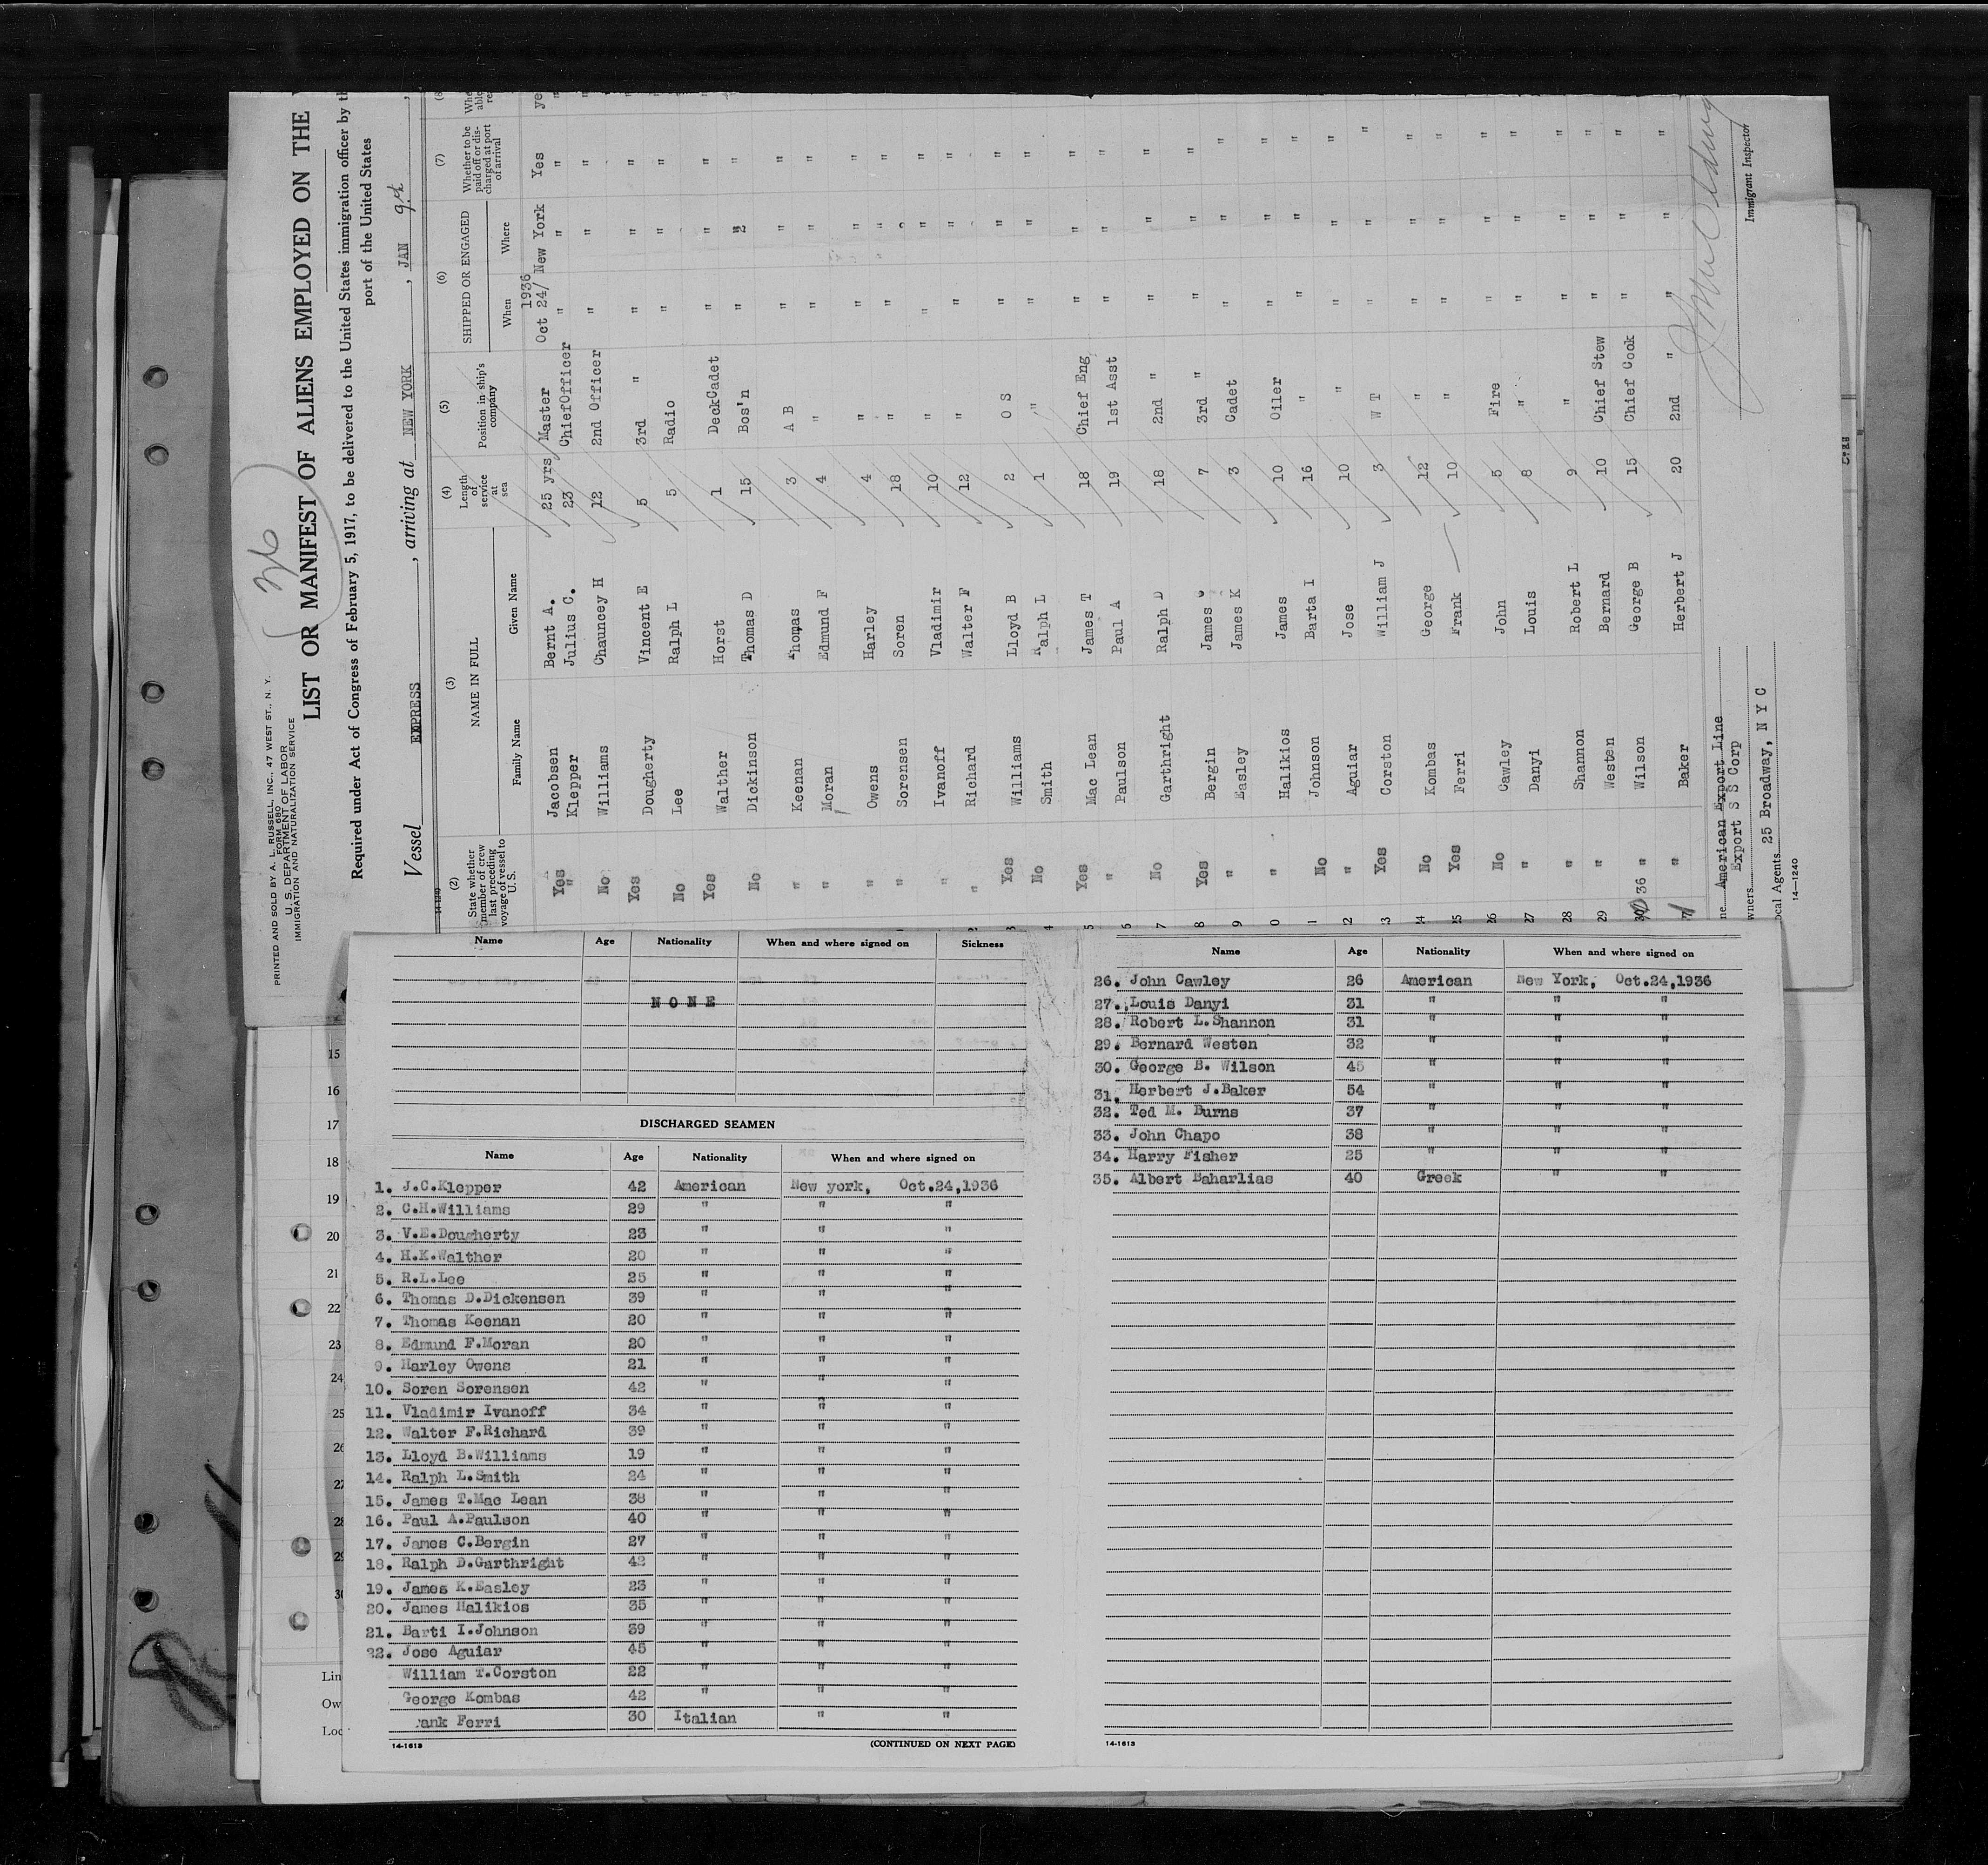 PRINTED AND SOLD BY A. L. RUSSELL, INC., 47 WEST ST., N. Y.
FORM 680
U. S. DEPARTMENT OF LABOR
IMMIGRATION AND NATURALIZATION SERVICE
36
LIST OR MANIFEST OF ALIENS EMPLOYED ON THE
Required under Act of Congress of February 5, 1917, to be delivered to the United States immigration officer by
port of the United States
Vessel EXPRESS, arriving at NEW YORK, JAN 9th,
14-1240
(2) (3) (4) (5) (6) (7)
State whether member of crew last preceding voyage of vessel to U. S. NAME IN FULL Length of service at sea Position in ship's company SHIPPED OR ENGAGED Whether to be paid off or discharged at port of arrival
Family Name Given Name When Where
1936
Yes Jacobsen Bernt A. 25 yrs Master Oct 24/ New York Yes ye
" Klepper Julius C. 23 ChiefOfficer " " " "
No Williams Chauncey H 12 2nd Officer " " " "
Yes Dougherty Vincent E 5 3rd " " " " "
No Lee Ralph L 5 Radio " " " "
Yes Walther Horst 1 DeckCadet " " " "
No Dickinson Thomas D 15 Bos'n " " " "
" Keenan Thomas 3 A B " " " "
" Moran Edmund F 4 " " " " "
" Owens Harley 4 " " " " "
" Sorensen Soren 18 " " " " "
" Ivanoff Vladimir 10 " " " " "
" Richard Walter F 12 " " " " "
Yes Williams Lloyd B 2 O S " " " "
No Smith Ralph L 1 " " " " "
Yes Mac Lean James T 18 Chief Eng " " " "
" Paulson Paul A 19 1st Asst " " " "
No Garthright Ralph D 18 2nd " " " " "
Yes Bergin James C 7 3rd " " " " "
" Easley James K 3 Cadet " " " "
" Halikios James 10 Oiler " " " "
No Johnson Barta I 16 " " " " "
" Aguiar Jose 10 " " " " "
Yes Corston William J 3 W T " " " "
No Kombas George 12 " " " " "
Yes Ferri Frank 10 " " " " "
No Cawley John 5 Fire " " " "
" Danyi Louis 8 " " " " "
" Shannon Robert L 9 " " " " "
" Westen Bernard 10 Chief Stew " " " "
" Wilson George B 15 Chief Cook " " " "
" Baker Herbert J 20 2nd " " " " "
36
American Export Line
Export S S Corp
wners
ocal Agents 25 Broadway, N Y C
14—1240
Immigrant Inspector
Name Age Nationality When and where signed on Sickness
NONE
DISCHARGED SEAMEN
Name Age Nationality When and where signed on
1. J.C.Klepper 42 American New york, Oct.24,1936
2. C.H.Williams 29 " " "
3. V.E.Dougherty 23 " " "
4. H.K.Walther 20 " " "
5. R.L.Lee 25 " " "
6. Thomas D.Dickensen 39 " " "
7. Thomas Keenan 20 " " "
8. Edmund F.Moran 20 " " "
9. Harley Owens 21 " " "
10. Soren Sorensen 42 " " "
11. Vladimir Ivanoff 34 " " "
12. Walter F.Richard 39 " " "
13. Lloyd B.Williams 19 " " "
14. Ralph L.Smith 24 " " "
15. James T.Mac Lean 38 " " "
16. Paul A.Paulson 40 " " "
17. James C.Bergin 27 " " "
18. Ralph D.Garthright 42 " " "
19. James K.Easley 23 " " "
20. James Halikios 35 " " "
21. Barti I.Johnson 39 " " "
22. Jose Aguiar 45 " " "
William T.Corston 22 " " "
George Kombas 42 " " "
rank Ferri 30 Italian " "
14-1613 (CONTINUED ON NEXT PAGE)
Name Age Nationality When and where signed on
26. John Cawley 26 American New York, Oct.24,1936
27. Louis Danyi 31 " " "
28. Robert L.Shannon 31 " " "
29. Bernard Westen 32 " " "
30. George B. Wilson 45 " " "
31. Herbert J.Baker 54 " " "
32. Ted M. Burns 37 " " "
33. John Chapo 38 " " "
34. Harry Fisher 25 " " "
35. Albert Baharlias 40 Greek " "
14-1613
15
16
17
18
19
20
21
22
23
24
25
26
27
28
29
30
Lin
Ow
Loc